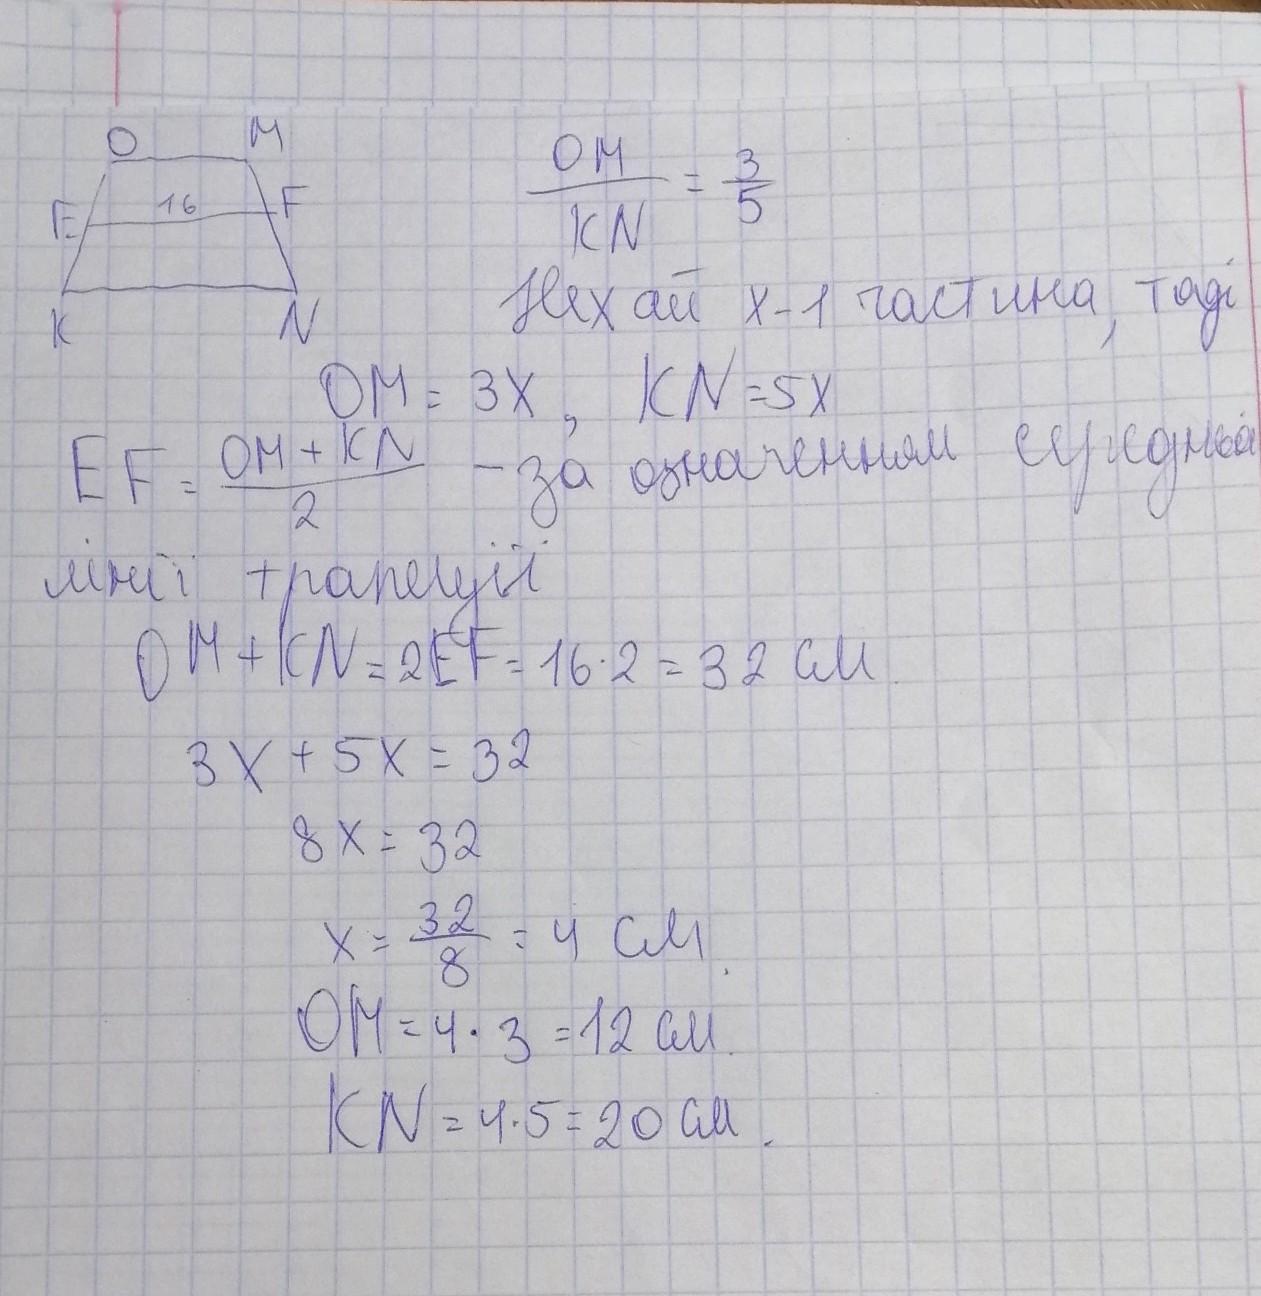 O M
E 16 F
K N
OM/KN = 3/5
Нехай x - 1 частина, тоді
OM = 3x, KN = 5x
EF = (OM + KN)/2 - за означенням середньої
лінії трапеції
OM + KN = 2EF = 16·2 = 32 см.
3x + 5x = 32
8x = 32
x = 32/8 = 4 см.
OM = 4·3 = 12 см.
KN = 4·5 = 20 см.